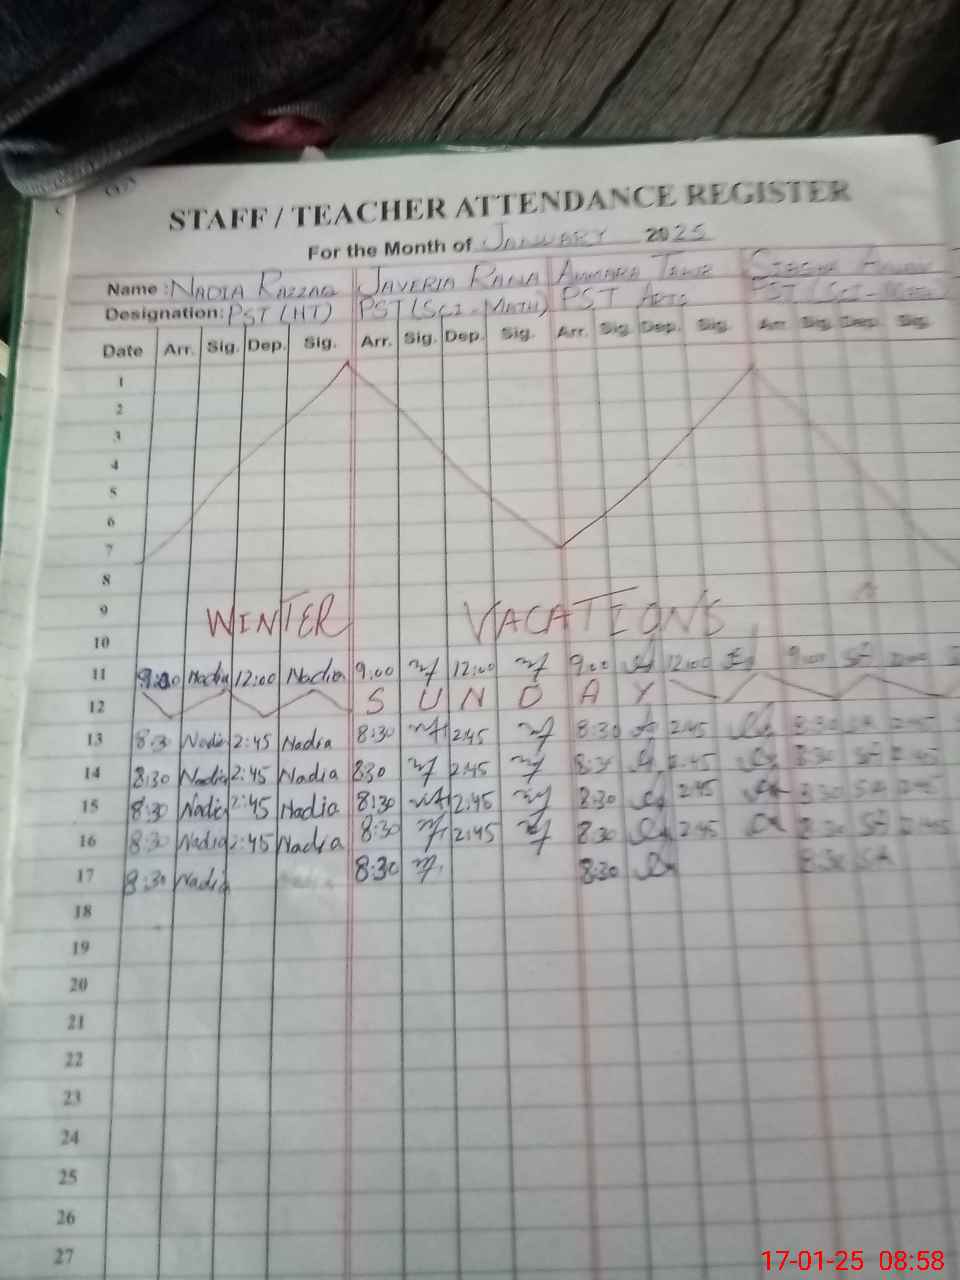 STAFF / TEACHER ATTENDANCE REGISTER
For the Month of JANUARY 2025
Name: NADIA RAZZAQ JAVERIA RANA AMMARA
Designation: PST (HT) PST (SCI-MATH) PST ARTS PST (SCI-MATH)
Date Arr. Sig. Dep. Sig. Arr. Sig. Dep. Sig. Arr. Sig. Dep. Sig. Arr. Sig. Dep. Sig.
1
2
3
4
5
6
7
8
9 WINTER VACATIONS
10
11 9:00 Nadia 12:00 Nadia 9:00 12:00 9:00 12:00 9:00
12 SUNDAY
13 8:30 Nadia 2:45 Nadia 8:30 2:45 8:30 2:45 8:30 2:45
14 8:30 Nadia 2:45 Nadia 830 2:45 8:30 2:45 8:30 2:45
15 8:30 Nadia 2:45 Nadia 8:30 2:45 8:30 2:45 8:30 2:45
16 8:30 Nadia 2:45 Nadia 8:30 2:45 8:30 2:45 8:30 2:45
17 8:30 Nadia 8:30 8:30 8:30
18
19
20
21
22
23
24
25
26
27
17-01-25 08:58